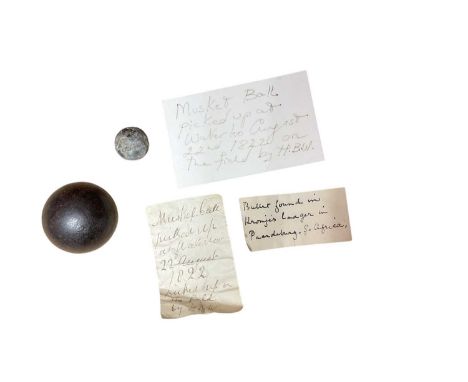 Musket Ball
picked up at
Waterloo August
22nd 1822 on
The field by H.B.W.
Musket ball
picked up
at Waterloo
22 August
1822
picked up on
the field
by
Bullet found in
Kronjes Laager in
Paardeburg. S. Africa.